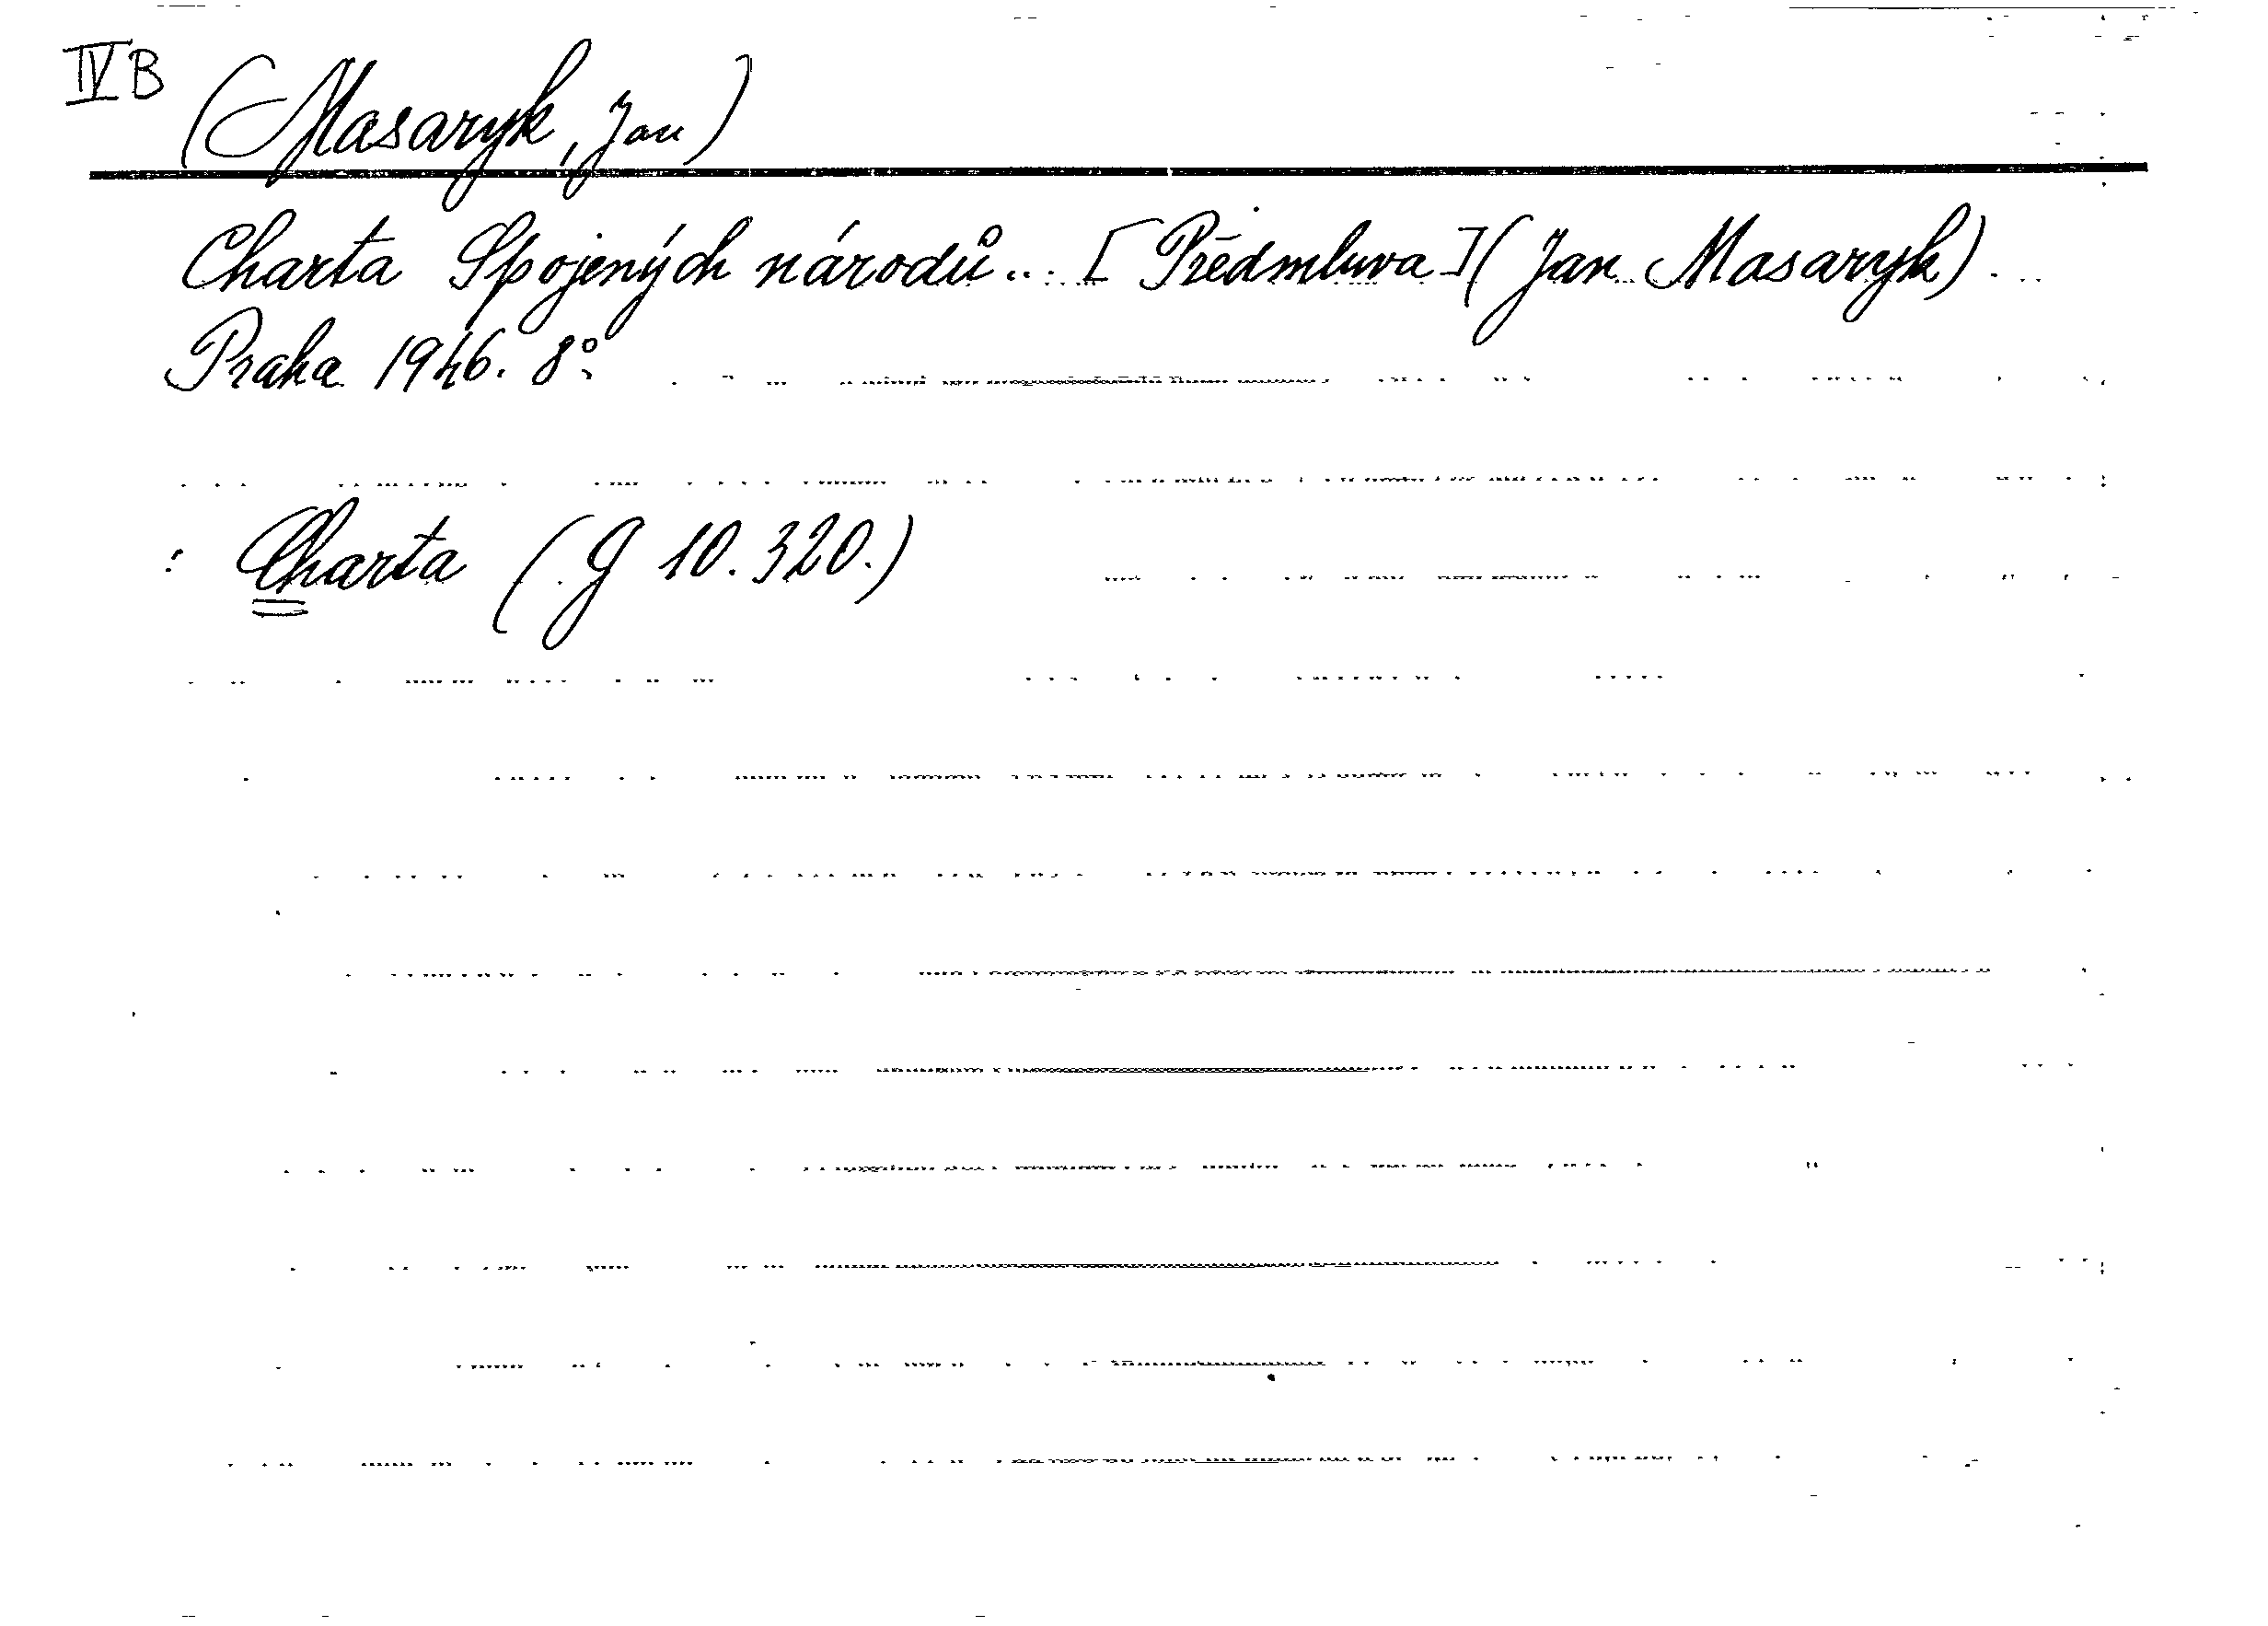 IVB
(Masaryk, Jan)
Charta Spojených národů... [Předmluva] (Jan Masaryk).
Praha 1946. 8°.
: Charta (G 10.320.)